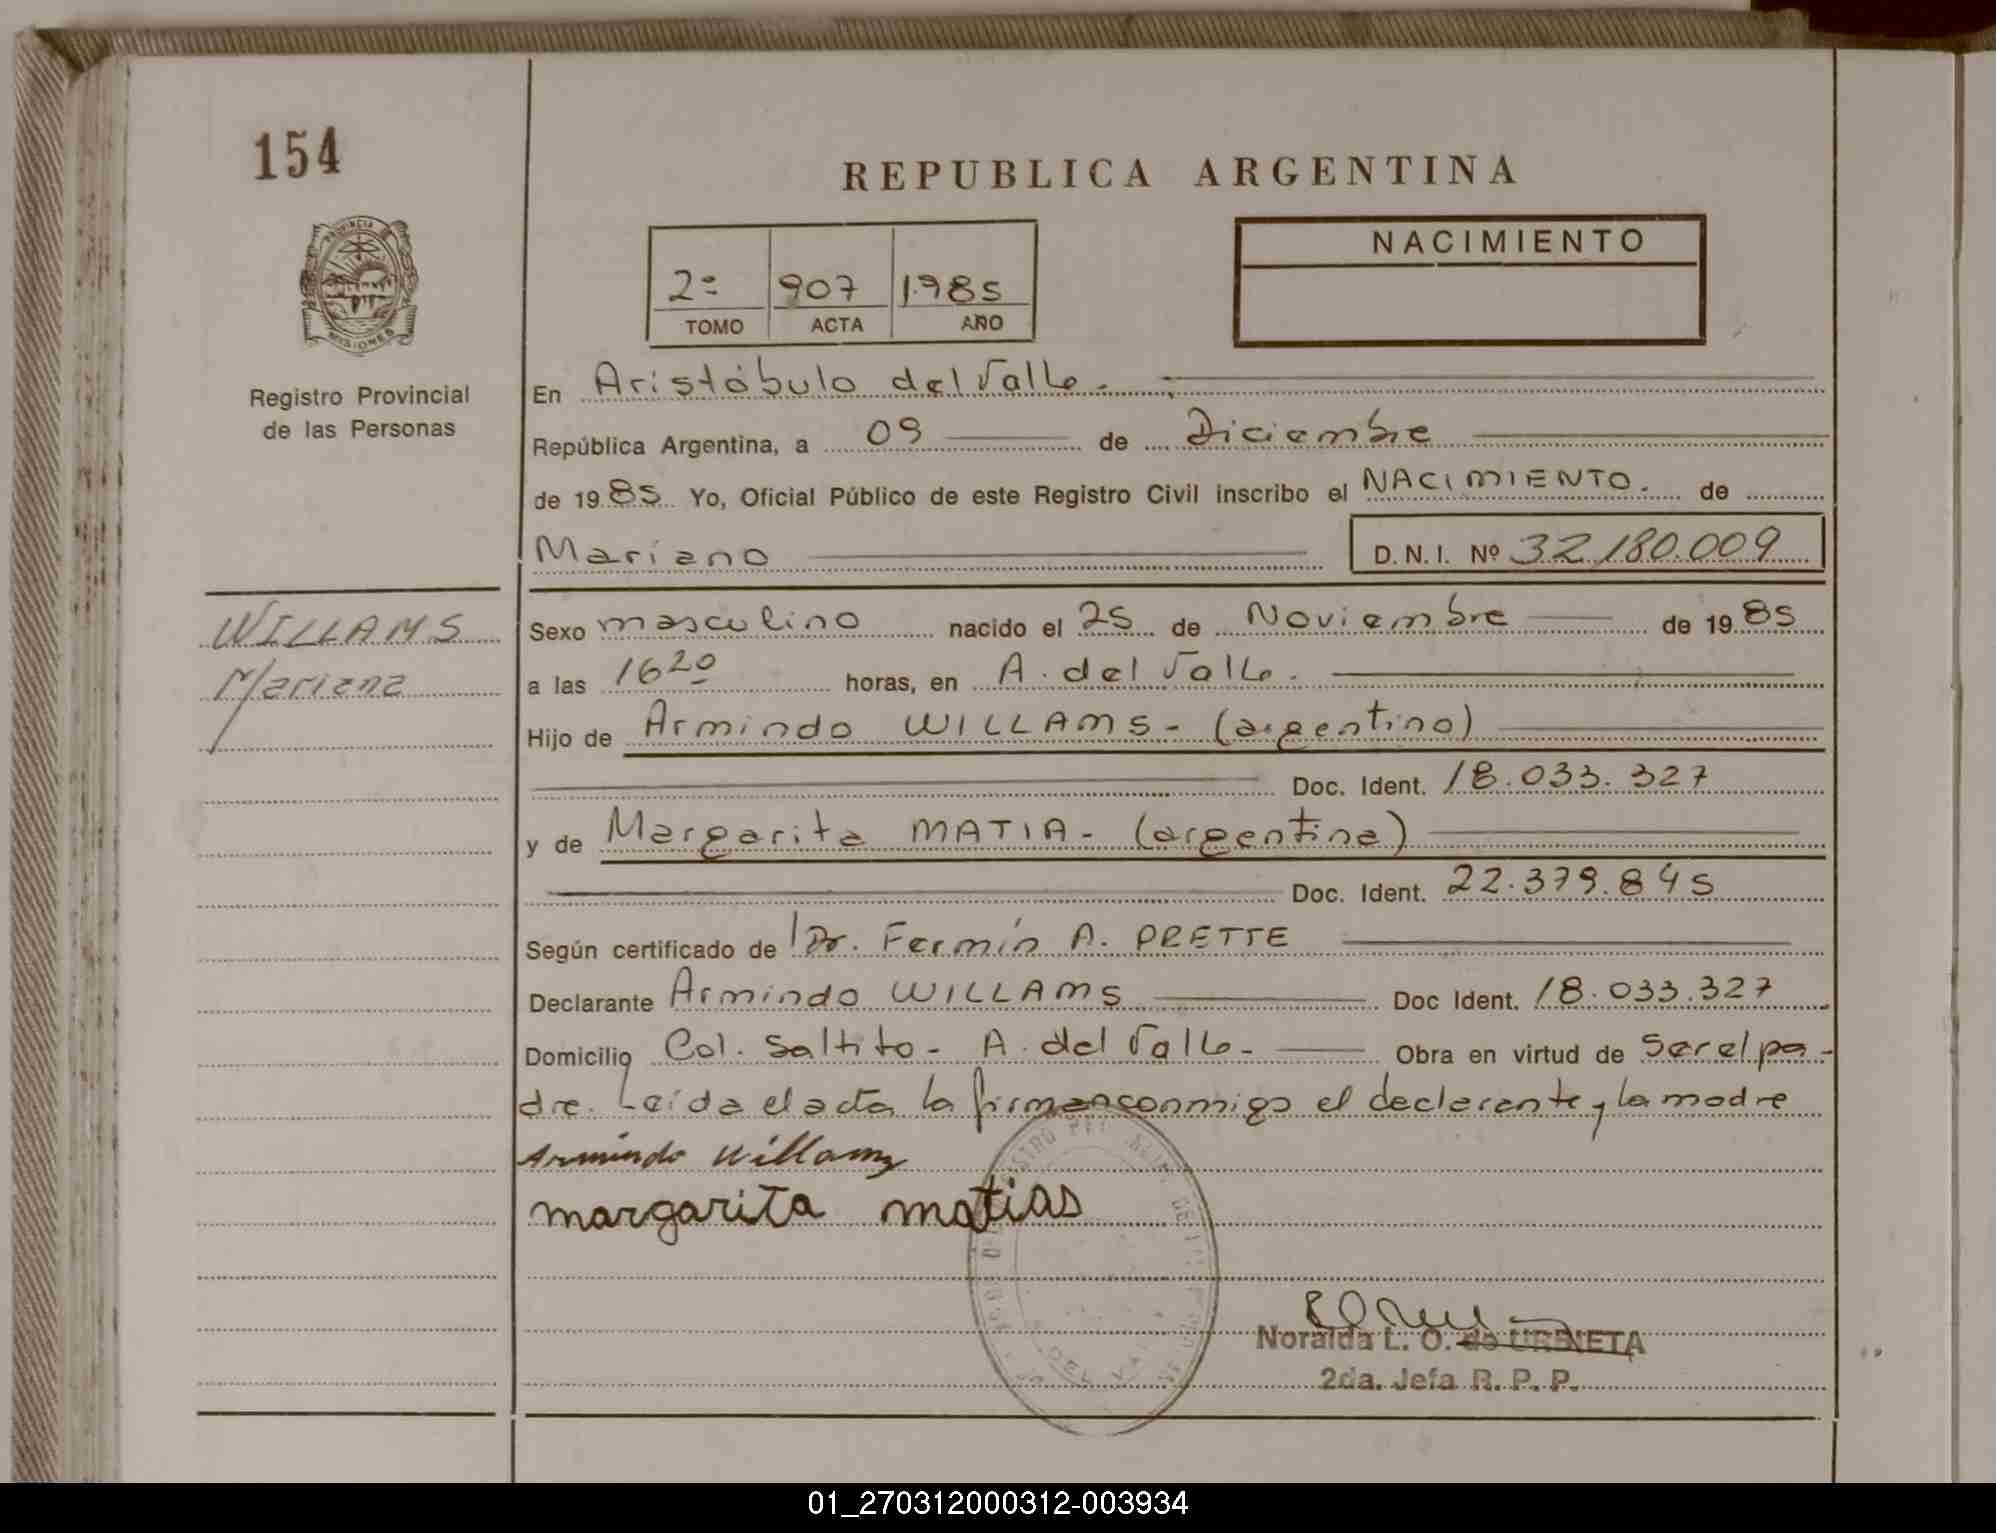 154
REPUBLICA ARGENTINA
PROVINCIA
MISIONES
Registro Provincial
de las Personas
2º 907 1985
TOMO ACTA AÑO
NACIMIENTO
En Aristóbulo del Valle.
República Argentina, a 09 de Diciembre
de 1985 Yo, Oficial Público de este Registro Civil inscribo el NACIMIENTO. de
Mariano D.N.I. Nº 32.180.009
WILLAMS
Mariano
Sexo masculino nacido el 25 de Noviembre de 1985
a las 16 20 horas, en A. del Valle.
Hijo de Armindo WILLAMS - (argentino)
Doc. Ident. 18.033.327
y de Margarita MATIA - (argentina)
Doc. Ident. 22.379.845
Según certificado de Dr. Fermín A. PRETTE
Declarante Armindo WILLAMS Doc Ident. 18.033.327
Domicilio Col. Saltito - A. del Valle - Obra en virtud de Ser el pa-
dre. Leída el acta la firman conmigo el declarante y la madre
Armindo Willams
margarita matias
Noralda L. O. de URBIETA
2da. Jefa R. P. P.
01_270312000312-003934